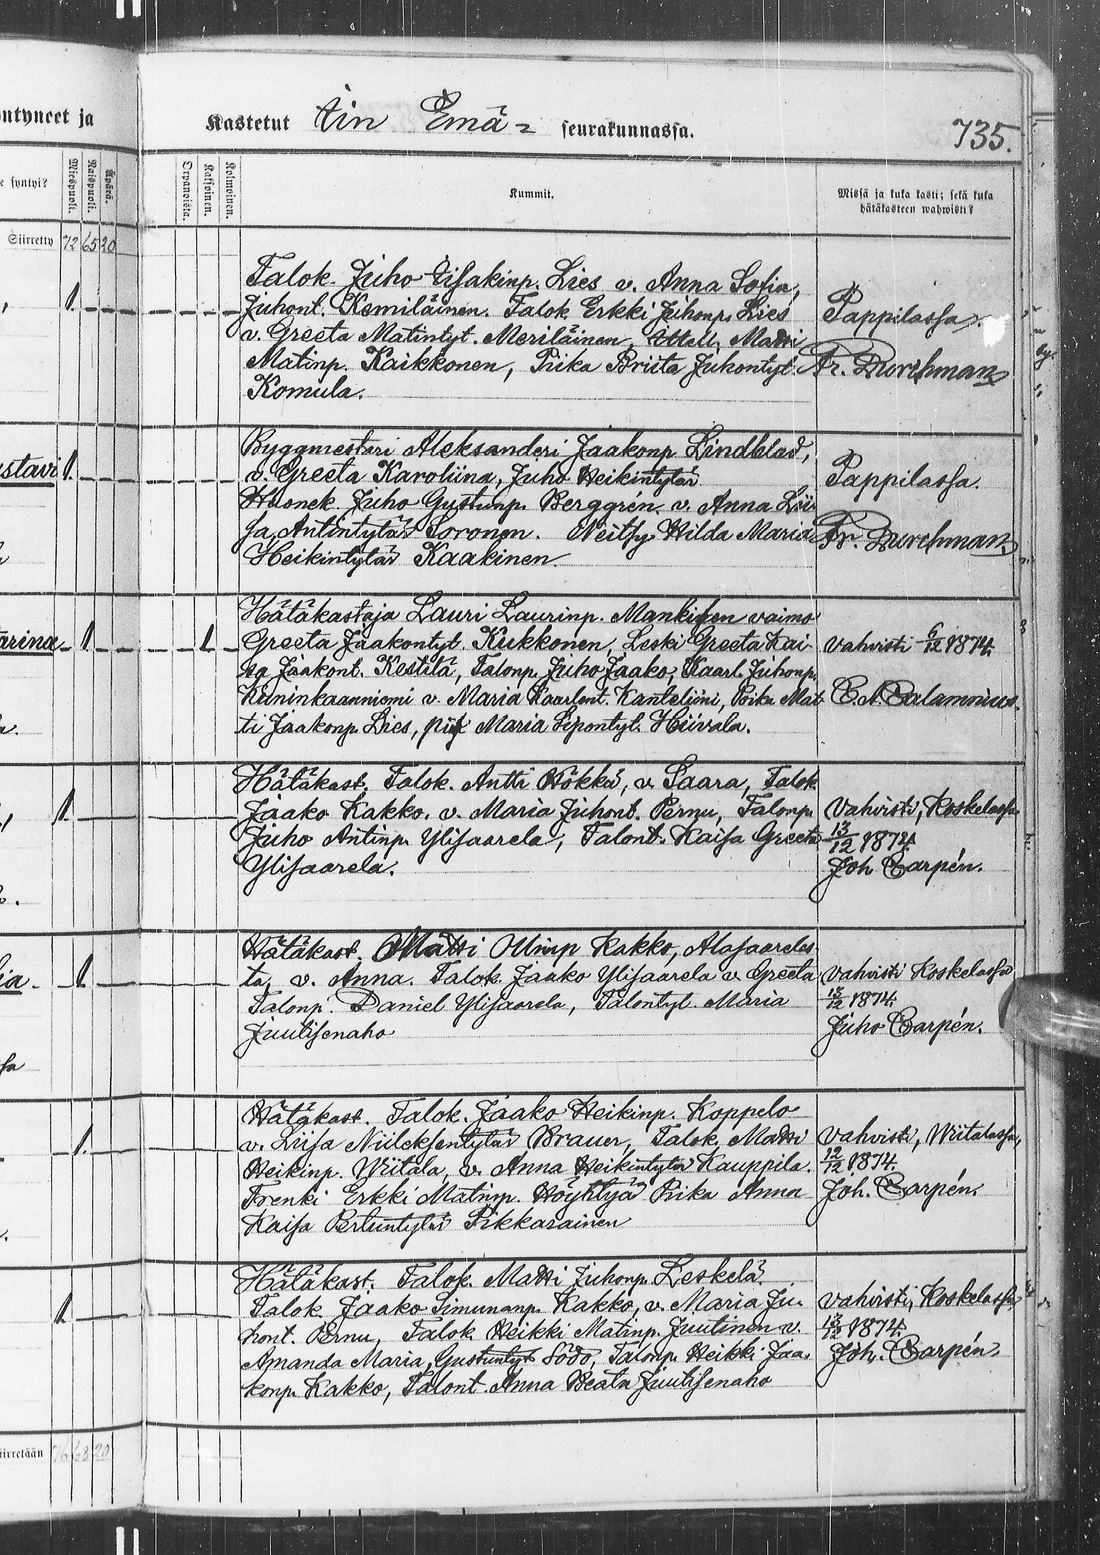 ntyneet ja
Kastetut Iin Emä= seurakunnassa.
735.
e syntyi?
Miespuoli.
Vaispuoli.
Äpärä.
Orpanoista.
Kaksoinen.
Kolmoinen.
Kummit.
Missä ja kuka kasti; sekä kuka
hätäkasteen wahwisti?
Siirretty 72 65 20
1.
Talok. Juho Iisakinp. Lies v. Anna Sofia,
Juhont. Kemiläinen. Talok Erkki Juhonp. Lies
v. Greeta Matintyt. Meriläinen, Ittell. Matti
Matinp. Kaikkonen, Piika Briita Juhontyt.
Komula.
Pappilassa.
Fr. Durchman
ustavi 1.
Byggmestari Aleksanderi Jaakonp Lindblad,
v. Greeta Karoliina, Juho Heikintytär
Huonek. Juho Gustanp. Berggrén v. Anna Lii-
sa, Antintytär Soronen. Neitsy Hilda Maria
Heikintytär Kaakinen
Pappilassa.
Fr. Durchman
arina 1
1
Hätäkastaja Lauri Laurinp. Mankisen vaimo
Greeta Jaakontyt. Kukkonen, Leski Greeta Kai-
sa Jaakont. Kestilä, Talonp. Juho Jaako, Kaarl. Juhonp.
Kuninkaanniemi v. Maria Kaarlent. Kanteljini, Poika Mat-
ti Jaakonp. Lies, piik Maria Sipontyt. Hiivala.
Vahvisti 6/12 1874.
C. A. Calamnius.
1.
Hätäkast. Talok. Antti Hökkä, v. Saara, Talok
Jaako Kakko. v. Maria Juhont. Pernu, Talonp.
Juho Antinp. Ylisaarela, Talont. Kaisa Greeta
Ylisaarela.
Vahvisti, Koskelassa
13/12 1874.
Joh Carpén.
ia. 1.
Hätäkast. Matti Ollinp Kakko, Alasaareles-
ta, v. Anna. Talok. Jaako Ylisaarela v. Greeta
Talonp. Daniel Ylisaarela, Talontyt. Maria
Juutisenaho
Vahvisti Koskelassa
13/12 1874.
Juho Carpén.
1.
Hätäkast. Talok. Jaako Heikinp. Koppelo
v. Liisa Niileksentytär Brauer, Talok. Matti
Heikinp. Wiitala, v. Anna Heikintytär Kauppila.
Trenki Erkki Matinp. Höyhtyä Piika Anna
Kaisa Pertuntytär Pikkarainen
Vahvisti, Wiitalassa,
12/12 1874.
Joh. Carpén.
1.
Hätäkast. Talok. Matti Juhonp. Leskelä
Talok. Jaako Simunanp. Kakko, v. Maria Ju-
hont. Pernu, Talok. Heikki Matinp. Juutinen v.
Amanda Maria, Gustuntyt. Södö, Talonp. Heikki Jaa-
konp. Kakko, Talont. Anna Beata Juutisenaho
Vahvisti, Koskelassa,
13/12 1874.
Joh. Carpén.
iirretään 76 68 20